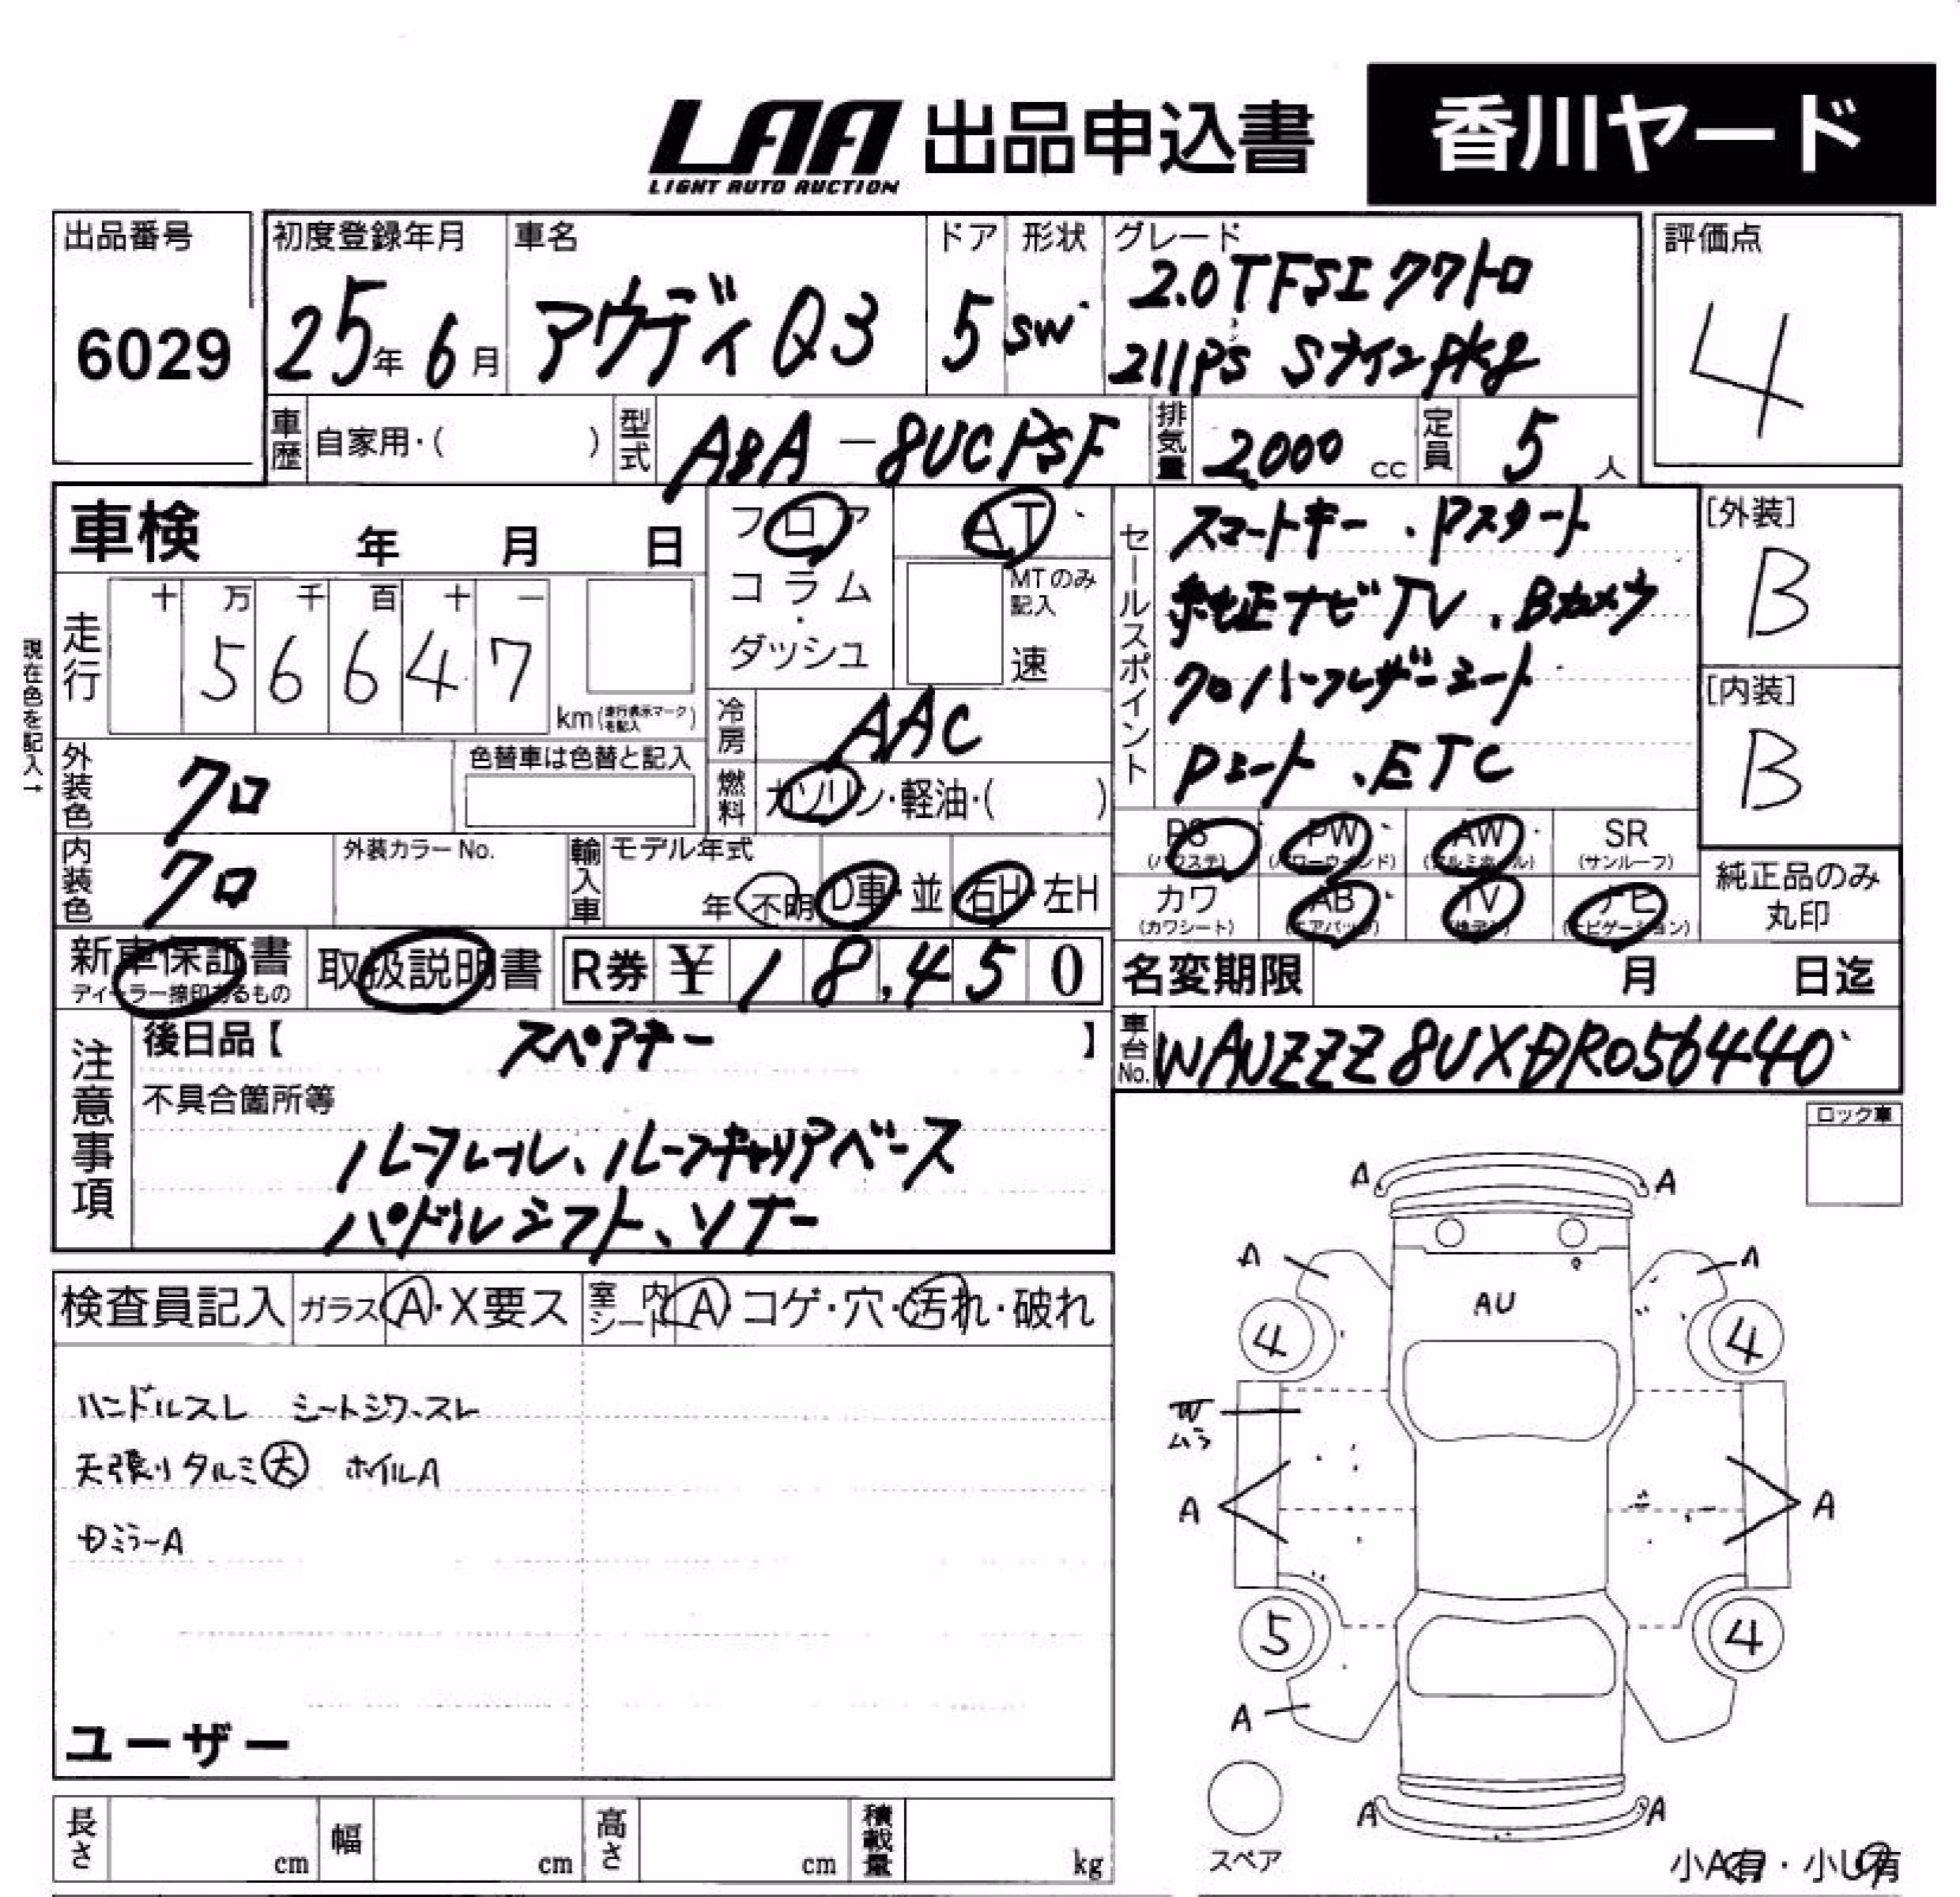 LAA 出品申込書 香川ヤード
LIGHT AUTO AUCTION
出品番号 6029
初度登録年月 25年 6月
車名 アウディ Q3
ドア 5
形状 SW
グレード 2.0TFSI クワトロ
211PS Sラインpkg
評価点 4
車歴 自家用・( )
型式 ABA-8UCPSF
排気量 2000 cc
定員 5 人
車検 年 月 日
フロア AT
コラム・
ダッシュ
MTのみ記入
速
走行 十 万 千 百 十 一
5 6 6 4 7
km(走行表示マークを記入)
現在色を記入↑
冷房 AAC
燃料 ガソリン・軽油・( )
外装色 クロ
色替車は色替と記入
内装色 クロ
外装カラーNo.
輸入車 モデル年式
年 不明 D車・並 右H・左H
セールスポイント
スマートキー ・Pスタート
純正ナビTV ・Bカメラ
クロハーフレザーシート
Pシート ・ETC
[外装] B
[内装] B
PS (パワステ) PW (パワーウィンド) AW (アルミホイール) SR (サンルーフ)
カワ (カワシート) AB (エアバッグ) TV ナビ (ナビゲーション)
純正品のみ
丸印
新車保証書
ディーラー捺印あるもの
取扱説明書
R券 ¥18,450
名変期限 月 日迄
車台No. WAUZZZ8UXDR056440
注意事項
後日品【 スペアキー 】
不具合箇所等
ルーフレール、ルーフキャリアベース
パドルシフト、ソナー
ロック車
検査員記入 ガラス A・X要ス 室内シート A コゲ・穴・汚れ・破れ
ハンドルスレ シートシワ・スレ
天張りタルミ大 ホイルA
ミラーA
ユーザー
A A
A A
AU
4 4
W
ムラ
A A
5 4
A
A A
スペア
小A有・小U有
長さ cm 幅 cm 高さ cm 積載量 kg